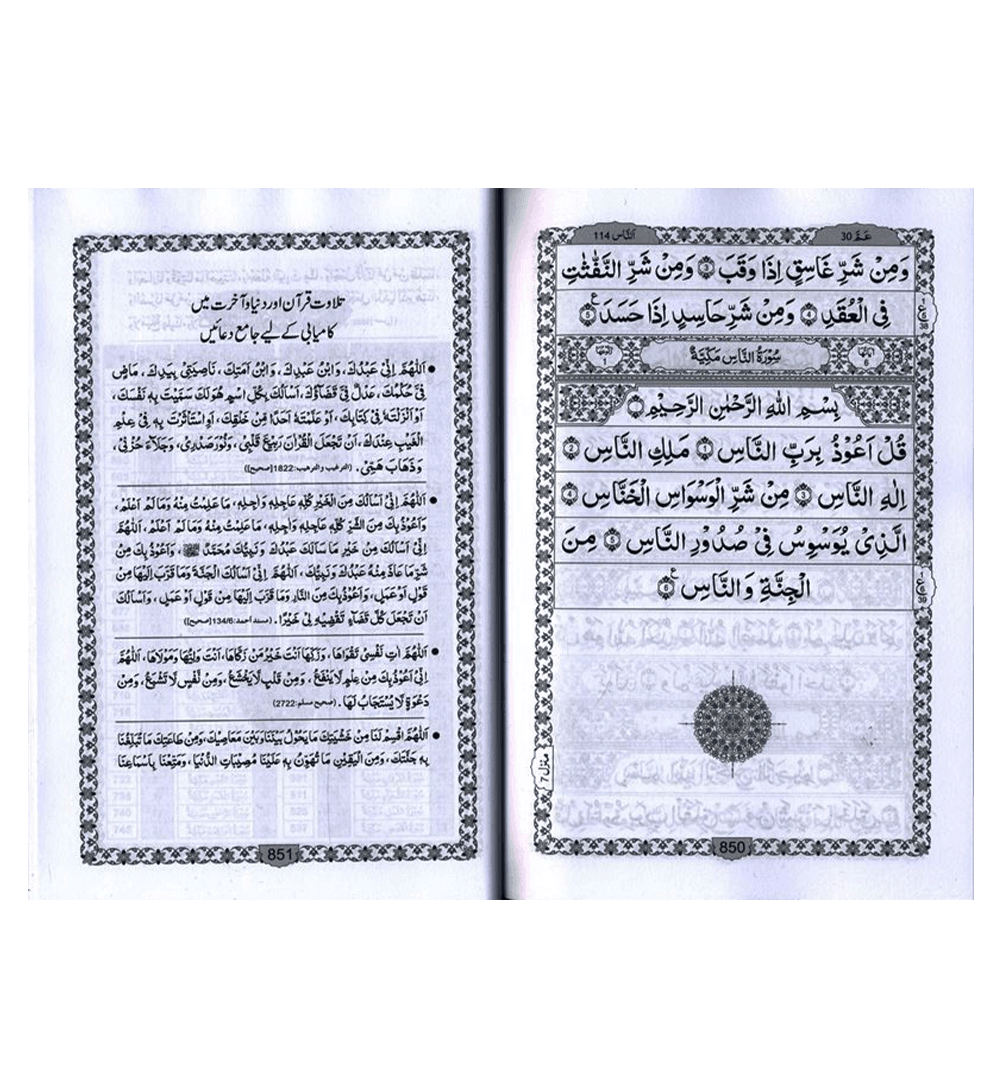 عـمّ 30
النّاس 114
وَمِنْ شَرِّ غَاسِقٍ اِذَا وَقَبَ ۝3 وَمِنْ شَرِّ النَّفّٰثٰتِ
فِى الْعُقَدِ ۝4 وَمِنْ شَرِّ حَاسِدٍ اِذَا حَسَدَ ۝5
سُوْرَةُ النَّاسِ مَكِّيَّةٌ
بِسْمِ اللّٰهِ الرَّحْمٰنِ الرَّحِيْمِ
قُلْ اَعُوْذُ بِرَبِّ النَّاسِ ۝1 مَلِكِ النَّاسِ ۝2
اِلٰهِ النَّاسِ ۝3 مِنْ شَرِّ الْوَسْوَاسِ الْخَنَّاسِ ۝4
الَّذِىْ يُوَسْوِسُ فِىْ صُدُوْرِ النَّاسِ ۝5 مِنَ
الْجِنَّةِ وَالنَّاسِ ۝6
منزل 7
850
تلاوت قرآن اور دنیا و آخرت میں
کامیابی کے لیے جامع دعائیں
● اَللّٰهُمَّ اِنِّىْ عَبْدُكَ، وَابْنُ عَبْدِكَ، وَابْنُ اَمَتِكَ، نَاصِيَتِىْ بِيَدِكَ، مَاضٍ
فِىَّ حُكْمُكَ، عَدْلٌ فِىَّ قَضَاؤُكَ، اَسْاَلُكَ بِكُلِّ اسْمٍ هُوَ لَكَ سَمَّيْتَ بِهٖ نَفْسَكَ،
اَوْ اَنْزَلْتَهٗ فِىْ كِتَابِكَ، اَوْ عَلَّمْتَهٗ اَحَدًا مِّنْ خَلْقِكَ، اَوِ اسْتَاْثَرْتَ بِهٖ فِىْ عِلْمِ
الْغَيْبِ عِنْدَكَ، اَنْ تَجْعَلَ الْقُرْاٰنَ رَبِيْعَ قَلْبِىْ، وَنُوْرَ صَدْرِىْ، وَجِلَآءَ حُزْنِىْ،
وَذَهَابَ هَمِّىْ. (الترغیب والترھیب:1822[صحیح])
● اَللّٰهُمَّ اِنِّىْ اَسْاَلُكَ مِنَ الْخَيْرِ كُلِّهٖ عَاجِلِهٖ وَاٰجِلِهٖ، مَا عَلِمْتُ مِنْهُ وَمَا لَمْ اَعْلَمْ،
وَاَعُوْذُ بِكَ مِنَ الشَّرِّ كُلِّهٖ عَاجِلِهٖ وَاٰجِلِهٖ، مَا عَلِمْتُ مِنْهُ وَمَا لَمْ اَعْلَمْ، اَللّٰهُمَّ
اِنِّىْ اَسْاَلُكَ مِنْ خَيْرِ مَا سَاَلَكَ عَبْدُكَ وَنَبِيُّكَ مُحَمَّدٌ ﷺ، وَاَعُوْذُ بِكَ مِنْ
شَرِّ مَا عَاذَ مِنْهُ عَبْدُكَ وَنَبِيُّكَ، اَللّٰهُمَّ اِنِّىْ اَسْاَلُكَ الْجَنَّةَ وَمَا قَرَّبَ اِلَيْهَا مِنْ
قَوْلٍ اَوْ عَمَلٍ، وَاَعُوْذُ بِكَ مِنَ النَّارِ وَمَا قَرَّبَ اِلَيْهَا مِنْ قَوْلٍ اَوْ عَمَلٍ، وَاَسْاَلُكَ
اَنْ تَجْعَلَ كُلَّ قَضَاءٍ تَقْضِيْهِ لِىْ خَيْرًا. (مسند احمد:134/6[صحیح])
● اَللّٰهُمَّ اٰتِ نَفْسِىْ تَقْوَاهَا، وَزَكِّهَا اَنْتَ خَيْرُ مَنْ زَكَّاهَا، اَنْتَ وَلِيُّهَا وَمَوْلَاهَا، اَللّٰهُمَّ
اِنِّىْ اَعُوْذُ بِكَ مِنْ عِلْمٍ لَّا يَنْفَعُ، وَمِنْ قَلْبٍ لَّا يَخْشَعُ، وَمِنْ نَّفْسٍ لَّا تَشْبَعُ، وَمِنْ
دَعْوَةٍ لَّا يُسْتَجَابُ لَهَا. (صحیح مسلم:2722)
● اَللّٰهُمَّ اقْسِمْ لَنَا مِنْ خَشْيَتِكَ مَا يَحُوْلُ بَيْنَنَا وَبَيْنَ مَعَاصِيْكَ، وَمِنْ طَاعَتِكَ مَا تُبَلِّغُنَا
بِهٖ جَنَّتَكَ، وَمِنَ الْيَقِيْنِ مَا تُهَوِّنُ بِهٖ عَلَيْنَا مُصِيْبَاتِ الدُّنْيَا، وَمَتِّعْنَا بِاَسْمَاعِنَا
851